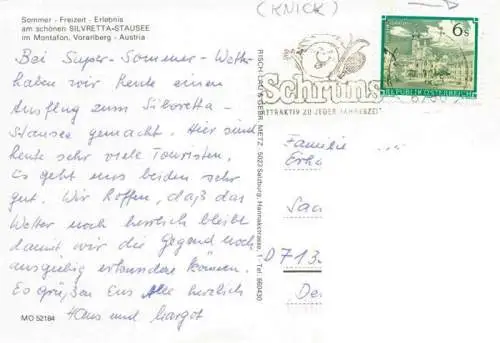 Sommer - Freizeit - Erlebnis
am schönen SILVRETTA-STAUSEE
im Montafon, Vorarlberg - Austria
Bei Super-Sommer-Wetter
haben wir heute einen
Ausflug zum Silvretta-
Stausee gemacht. Hier sind
heute sehr viele Touristen.
Es geht uns beiden sehr
gut. Wir hoffen, daß das
Wetter noch herrlich bleibt
damit wir die Gegend noch
ausgiebig erkunden können.
Es grüßen Euch Alle herzlich
Hans und Margot
MO 52184
RISCH-LAU & GEBR. METZ · 5023 Salzburg, Hannakstrasse. 1 - Tel. 660430
(KNICK)
Schruns
ATTRAKTIV ZU JEDER JAHRESZEIT
6 s
REPUBLIK ÖSTERREICH
Familie
D 713